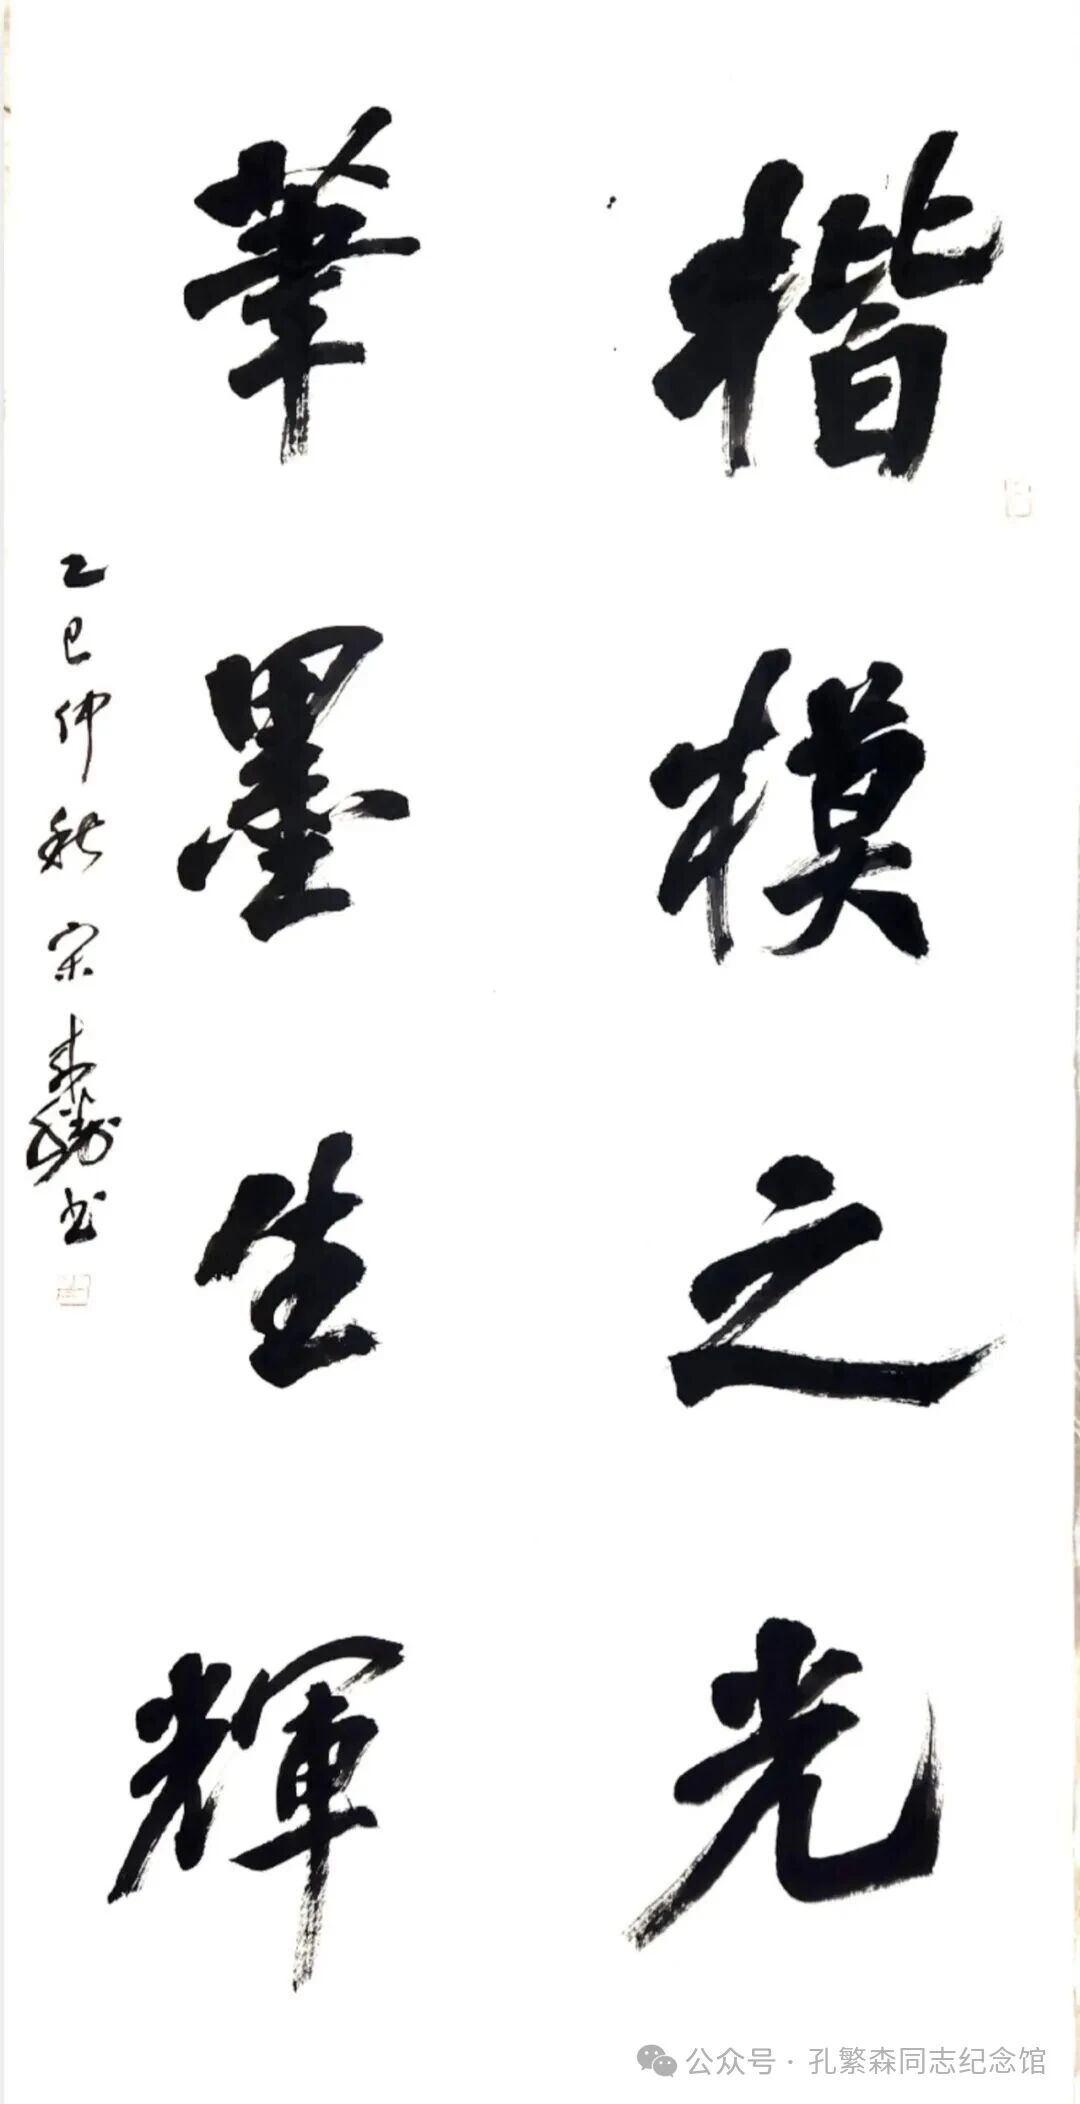 楷模之光
筆墨生輝
乙巳仲秋 宋
书
公众号·孔繁森同志纪念馆